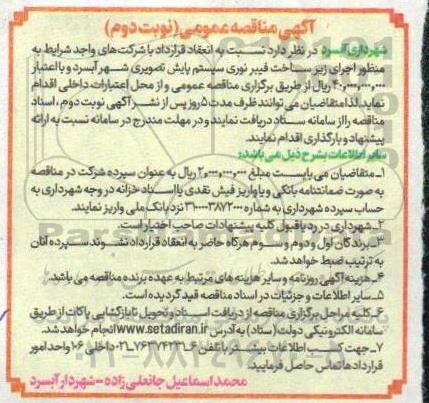 آگهی مناقصه عمومی (نوبت دوم)
شهرداری آبسرد در نظر دارد نسبت به انعقاد قرارداد با شرکت های واجد شرایط به
منظور اجرای زیر ساخت فیبر نوری سیستم پایش تصویری شهر آبسرد و با اعتبار
۴۰,۰۰۰,۰۰۰,۰۰۰ ریال از طریق برگزاری مناقصه عمومی و از محل اعتبارات داخلی اقدام
نماید. لذا متقاضیان می توانند ظرف مدت ۵ روز پس از نشر آگهی نوبت دوم، اسناد
مناقصه را از سامانه ستاد دریافت نمایند و در مهلت مندرج در سامانه نسبت به ارائه
پیشنهاد و بارگذاری اقدام نمایند.
سایر اطلاعات بشرح ذیل می باشد:
۱- متقاضیان می بایست مبلغ ۲,۰۰۰,۰۰۰,۰۰۰ ریال به عنوان سپرده شرکت در مناقصه
به صورت ضمانتنامه بانکی و یا واریز فیش نقدی یا اسناد خزانه در وجه شهرداری به
حساب سپرده شهرداری به شماره نزد بانک ملی واریز نمایند.
۲- شهرداری در رد یا قبول کلیه پیشنهادات صاحب اختیار است.
۳- برندگان اول و دوم و سوم هرگاه حاضر به انعقاد قرارداد نشوند سپرده آنان
به ترتیب ضبط خواهد شد.
۴- هزینه آگهی روزنامه و سایر هزینه های مرتبط به عهده برنده مناقصه می باشد.
۵- سایر اطلاعات و جزئیات در اسناد مناقصه قید گردیده است.
۶- کلیه مراحل برگزاری مناقصه از دریافت اسناد و تحویل تا بازگشایی پاکات از طریق
سامانه الکترونیکی دولت (ستاد) به آدرس www.setadiran.ir انجام خواهد شد.
۷- جهت کسب اطلاعات بیشتر با تلفن ۶-۷۶۳۷۴۲۳۱-۰۲۱ داخلی ۱۰۶ واحد امور
قراردادها تماس حاصل فرمایید.
محمد اسماعیل جانعلی زاده - شهردار آبسرد